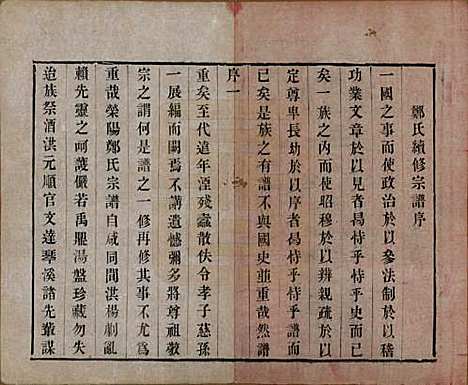 鄭氏續修宗譜序
一國之事而使政治於以參法制於以稽
功業文章於以見者曷恃乎恃乎史而已
矣一族之內而使昭穆於以辨親疏於以
定尊卑長幼於以序者曷恃乎恃乎譜而
已矣是族之有譜不與國史並重哉然譜
序一
重矣至代遠年湮殘蠹散佚令孝子慈孫
一展編而闕焉不講遺憾彌多將尊祖敬
宗之謂何是譜之一修再修其事不尤爲
重哉滎陽鄭氏宗譜自咸同間洪楊劇亂
賴先靈之呵護儼若禹鼎湯盤珍藏勿失
迨族祭酒洪元順官文達琴溪諸先輩謀